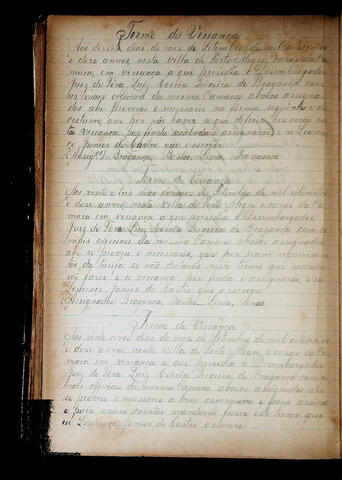 Termo de Vereança
Aos dezeseis dias do mez de Setembro de mil oitocentos
e doze annos, nesta villa de Porto Alegre, e casas da Ca
mara, em vereança a que presidio o Desembargador
Juiz de Fóra, Luiz Corrêa Teixeira de Bragança, com
os mais officiaes da mesma Camara abaixo assigna
dos ahi proveo o necessario na forma
costume, que por não haver a que deferir houverão es
ta vereança por finda acabada e assignarão, e eu Louren
ço Junior de Castro que o escrevi
Assig Bragança, Bastos, Lima,
Termo de Vereança
Aos vinte e tres dias do mez de Setembro de mil oitocentos
e doze annos, nesta villa de Porto Alegre e casas da Ca
mara em vereança a que presidio o Desembargador
Juiz de Fóra, Luiz Corrêa Teixeira de Bragança com os
mais officiaes da mesma Camara abaixo assignados
ahi se proveo o necessario, que por serem
da se não
fazer, e a vereança por finda e assignarão, e eu
Lourenço Junior de Castro que o escrevi
Assignados Bragança, Bastos, Lima,
Termo de Vereança
Aos vinte e seis dias do mez de Setembro de mil oitocentos
e doze annos nesta villa de Porto Alegre e casas da Ca
mara em vereança a que presidio o Desembargador
Juiz de Fóra, Luiz Corrêa Teixeira de Bragança com os
mais officiaes da mesma Camara abaixo assignados ahi
se proveo o necessario a bem commum e para assim
e para constar mandarão fazer este termo que
eu Lourenço Junior de Castro o escrevi